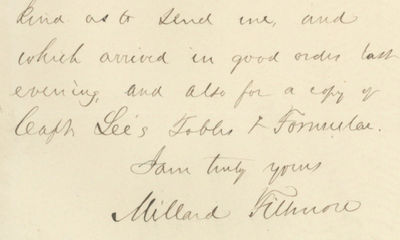 kind as to send me, and
which arrived in good order last
evening, and also for a copy of
Capt Lee's Tables & Formulae.
I am truly yours
Millard Fillmore